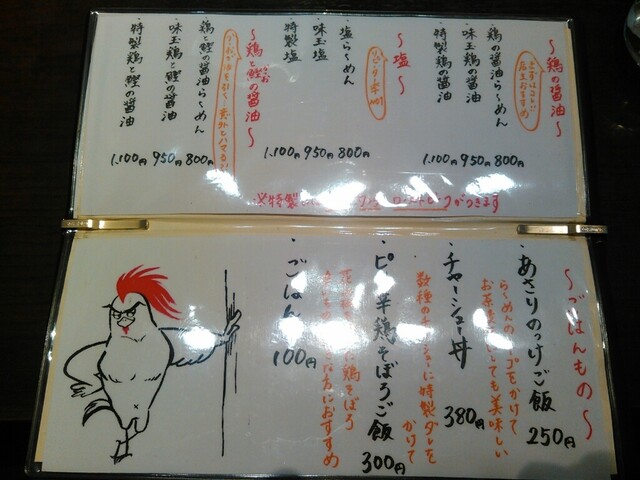 〜鶏の醤油〜
まずはコレ!
店主おすすめ
鶏の醤油らーめん 800円
味玉鶏の醤油 950円
特製鶏の醤油 1,100円
〜塩〜
塩らーめん 800円
味玉塩 950円
特製塩 1,100円
〜鶏と鰹の醤油〜
鶏と鰹の醤油らーめん 800円
味玉鶏と鰹の醤油 950円
特製鶏と鰹の醤油 1,100円
※特製 がつきます
〜ごはんもの〜
・あさりのっけご飯 250円
らーめんのスープをかけて
お茶漬けにしても美味しい
・チャーシュー丼 380円
数種のチャーシューに特製ダレを
かけて
・ピリ辛鶏そぼろご飯 300円
鶏そぼろ
な方におすすめ
・ごはん 100円